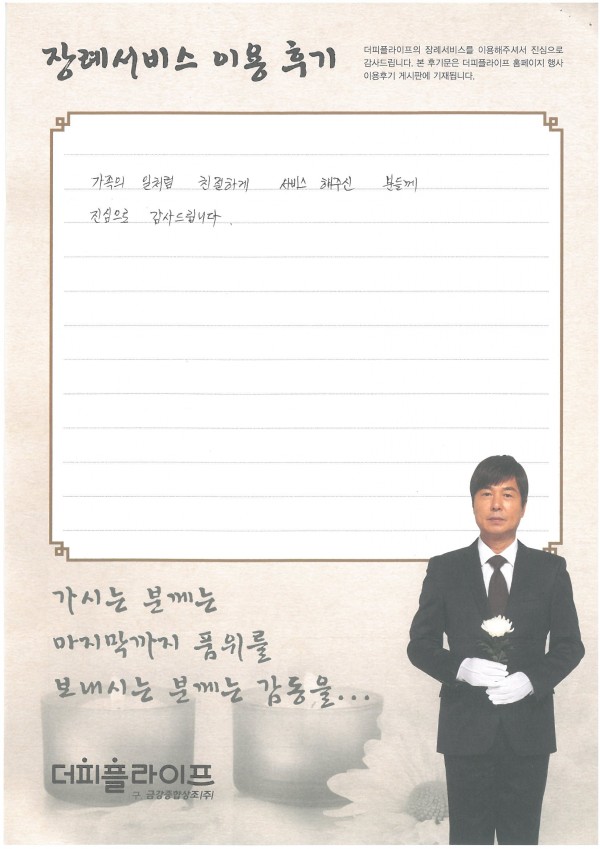 장례서비스 이용 후기
더피플라이프의 장례서비스를 이용해주셔서 진심으로
감사드립니다. 본 후기문은 더피플라이프 홈페이지 행사
이용후기 게시판에 기재됩니다.
가족의 일처럼 친절하게 서비스 해주신 분들께
진심으로 감사드립니다.
가시는 분께는
마지막까지 품위를
보내시는 분께는 감동을...
더피플라이프
구. 금강종합상조(주)